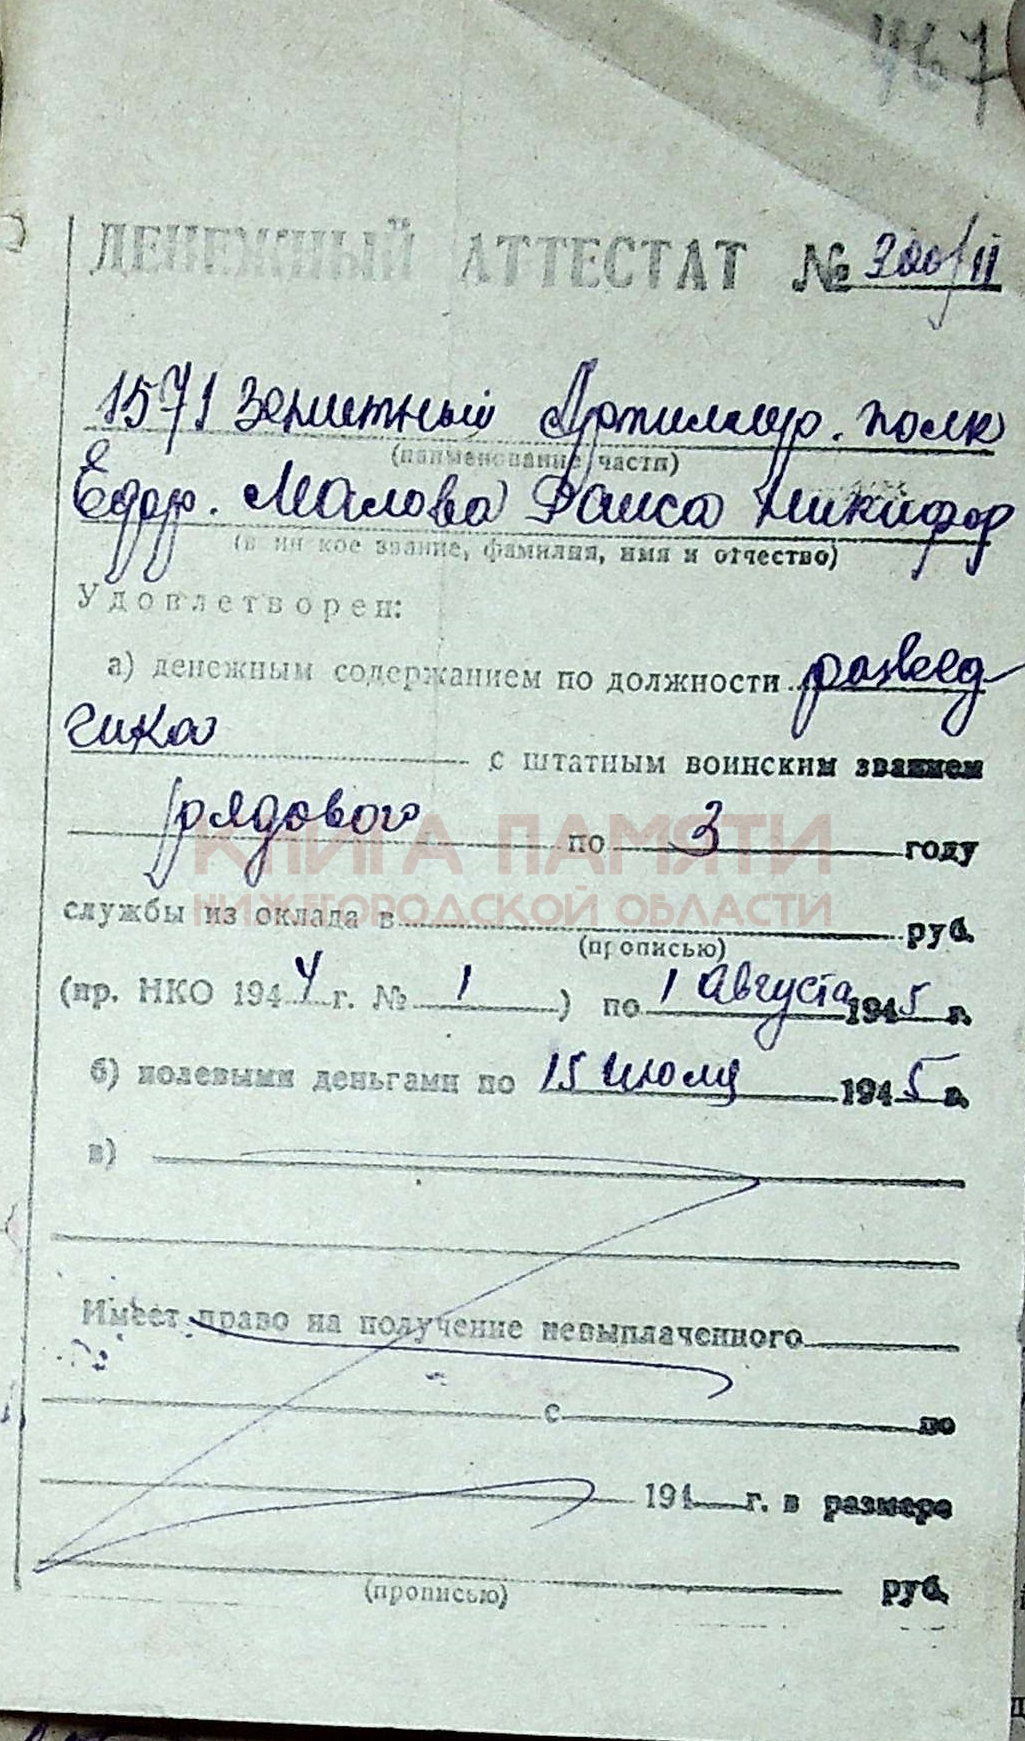 467
ДЕНЕЖНЫЙ АТТЕСТАТ № 320/11
1571 Зенитный Артиллер. полк
(наименование части)
Ефр. Малова Раиса Никифор
(воинское звание, фамилия, имя и отчество)
Удовлетворен:
а) денежным содержанием по должности развед
чика с штатным воинским званием
рядового по 3 году
КНИГА ПАМЯТИ
НИЖЕГОРОДСКОЙ ОБЛАСТИ
службы из оклада в руб.
(прописью)
(пр. НКО 1944 г. № 1 ) по 1 Августа 1945 г.
б) полевыми деньгами по 15 Июля 1945 г.
в)
Имеет право на получение невыплаченного
с по
194 г. в размере
руб.
(прописью)